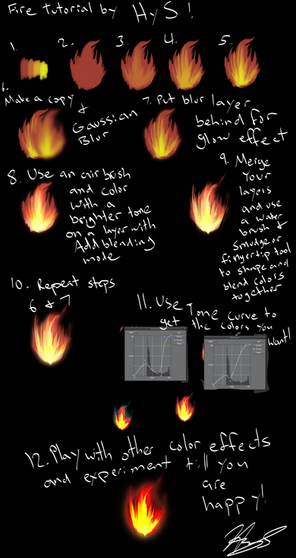 Fire tutorial by HyS!
1. 2. 3. 4. 5.
6.
Make a copy
&
Gaussian
Blur
7. Put blur layer
behind for
glow effect
8. Use an airbrush
and color
with a
brighter tone
on a layer with
Add blending
mode
9. Merge
your
layers
and use
a water
brush &
smudge or
fingertip tool
to shape and
blend colors
together
10. Repeat steps
6 & 7
11. Use Tone curve to
get the colors you
want!
12. Play with other color effects
and experiment till you
are
happy!